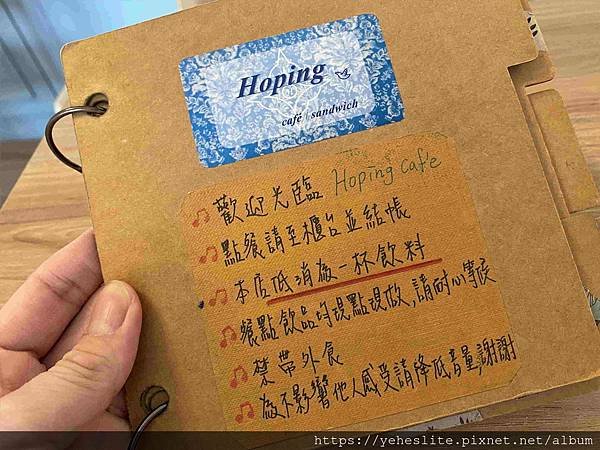 Hoping
café sandwich
歡迎光臨 Hoping café
點餐請至櫃台並結帳
本店低消為一杯飲料
餐點飲品均現點現做,請耐心等候
禁帶外食
為不影響他人感受請降低音量,謝謝
https://yeheslite.pixnet.net/album